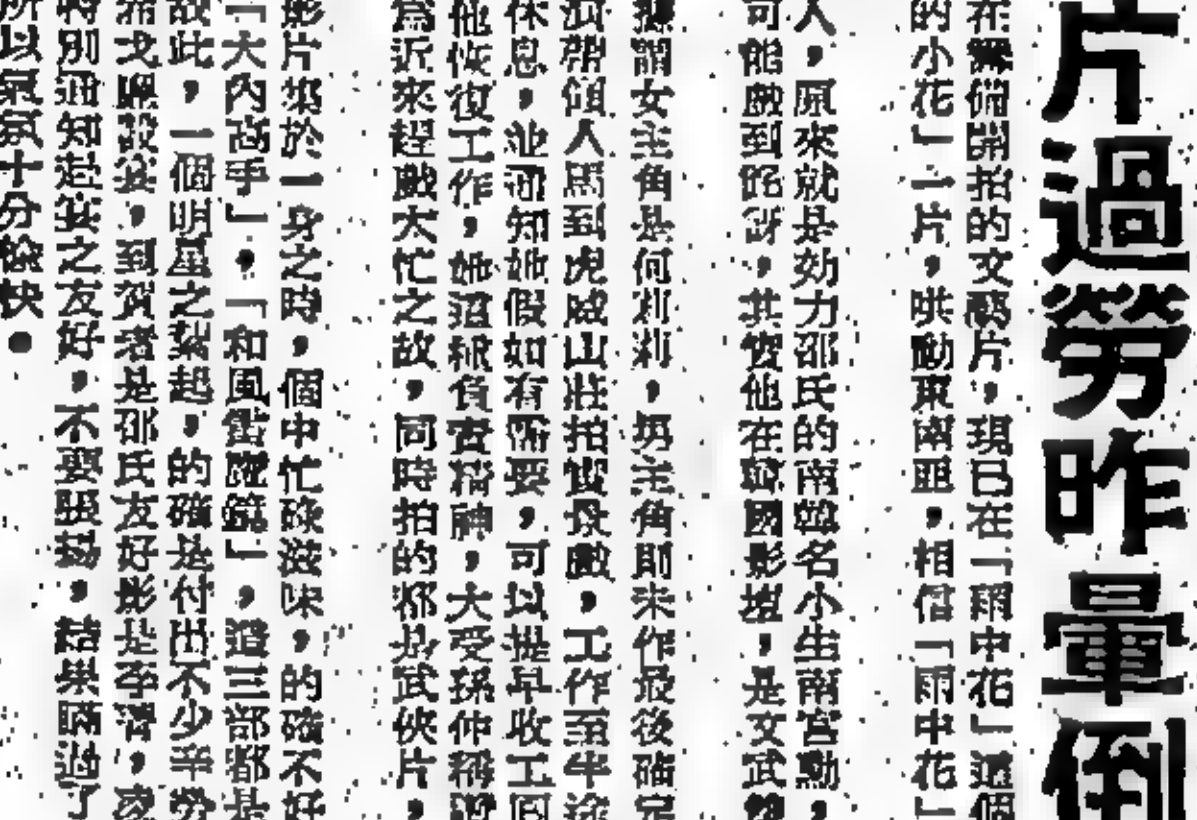 片過勞昨暈倒
在籌備開拍的文藝片，現已在「雨中花」這個
的小花」一片，哄動東南亞，相信「雨中花」
人，原來就是効力邵氏的南韓名小生南宮勳，
可能戲到好，其實他在韓國影壇，是文武
據謂女主角是何莉莉，男主角則未作最後確定
演帶領人馬到虎威山莊拍實景戲，工作至半途
休息，並通知她假如有需要，可以提早收工回
他恢復工作，她這種負責精神，大受孫仲稱
為近來趕戲太忙之故，同時拍的都是武俠片，
影片集於一身之時，個中忙碌滋味，的確不好
「大內高手」，「和風」，這三部都是
故此，一個明星之紮起，的確是付出不少辛勞
設宴，到賀者是邵氏友好影
特別通知赴宴之友好，不要張揚，結果瞞過了
所以氣氛十分愉快。